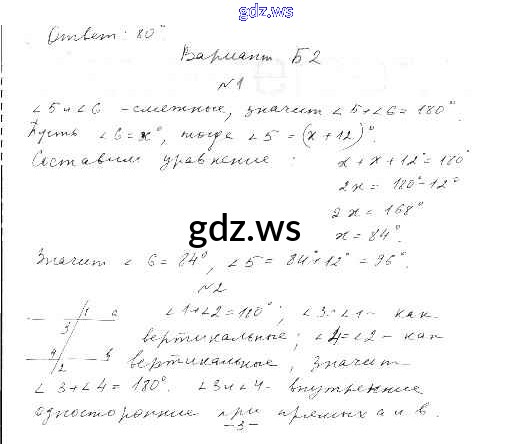 gdz.ws
Ответ: 80°
Вариант Б2
№1
∠5 и ∠6 - смежные, значит ∠5+∠6=180°.
Пусть ∠6=x°, тогда ∠5=(x+12)°.
Составим уравнение: x+x+12°=180°
2x=180°-12°
2x=168°
x=84°.
gdz.ws
Значит ∠6=84°, ∠5=84°+12°=96°.
№2
1 a ∠1+∠2=180°; ∠3=∠1- как
3 вертикальные; ∠4=∠2- как
4 b вертикальные, значит
2
∠3+∠4=180°. ∠3 и ∠4- внутренние
односторонние при прямых a и b.
-3-
gdz.ws